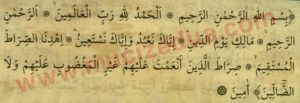 ﴿بِسْمِ اللّٰهِ الرَّحْمٰنِ الرَّحِيمِ ۝ اَلْحَمْدُ لِلّٰهِ رَبِّ الْعَالَمِينَ ۝ اَلرَّحْمٰنِ
الرَّحِيمِ ۝ مَالِكِ يَوْمِ الدِّينِ ۝ اِيَّاكَ نَعْبُدُ وَاِيَّاكَ نَسْتَعِينُ ۝ اِهْدِنَا الصِّرَاطَ
الْمُسْتَقِيمَ ۝ صِرَاطَ الَّذِينَ اَنْعَمْتَ عَلَيْهِمْ غَيْرِ الْمَغْضُوبِ عَلَيْهِمْ وَلَا
الضَّالِّينَ﴾ اٰمِينَ ۝